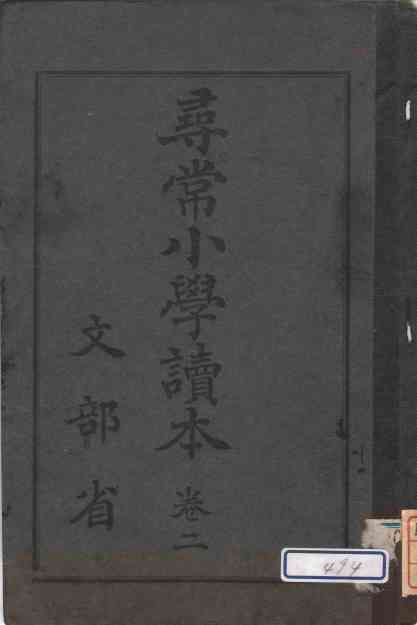 尋常小學讀本 卷二
文部省
494